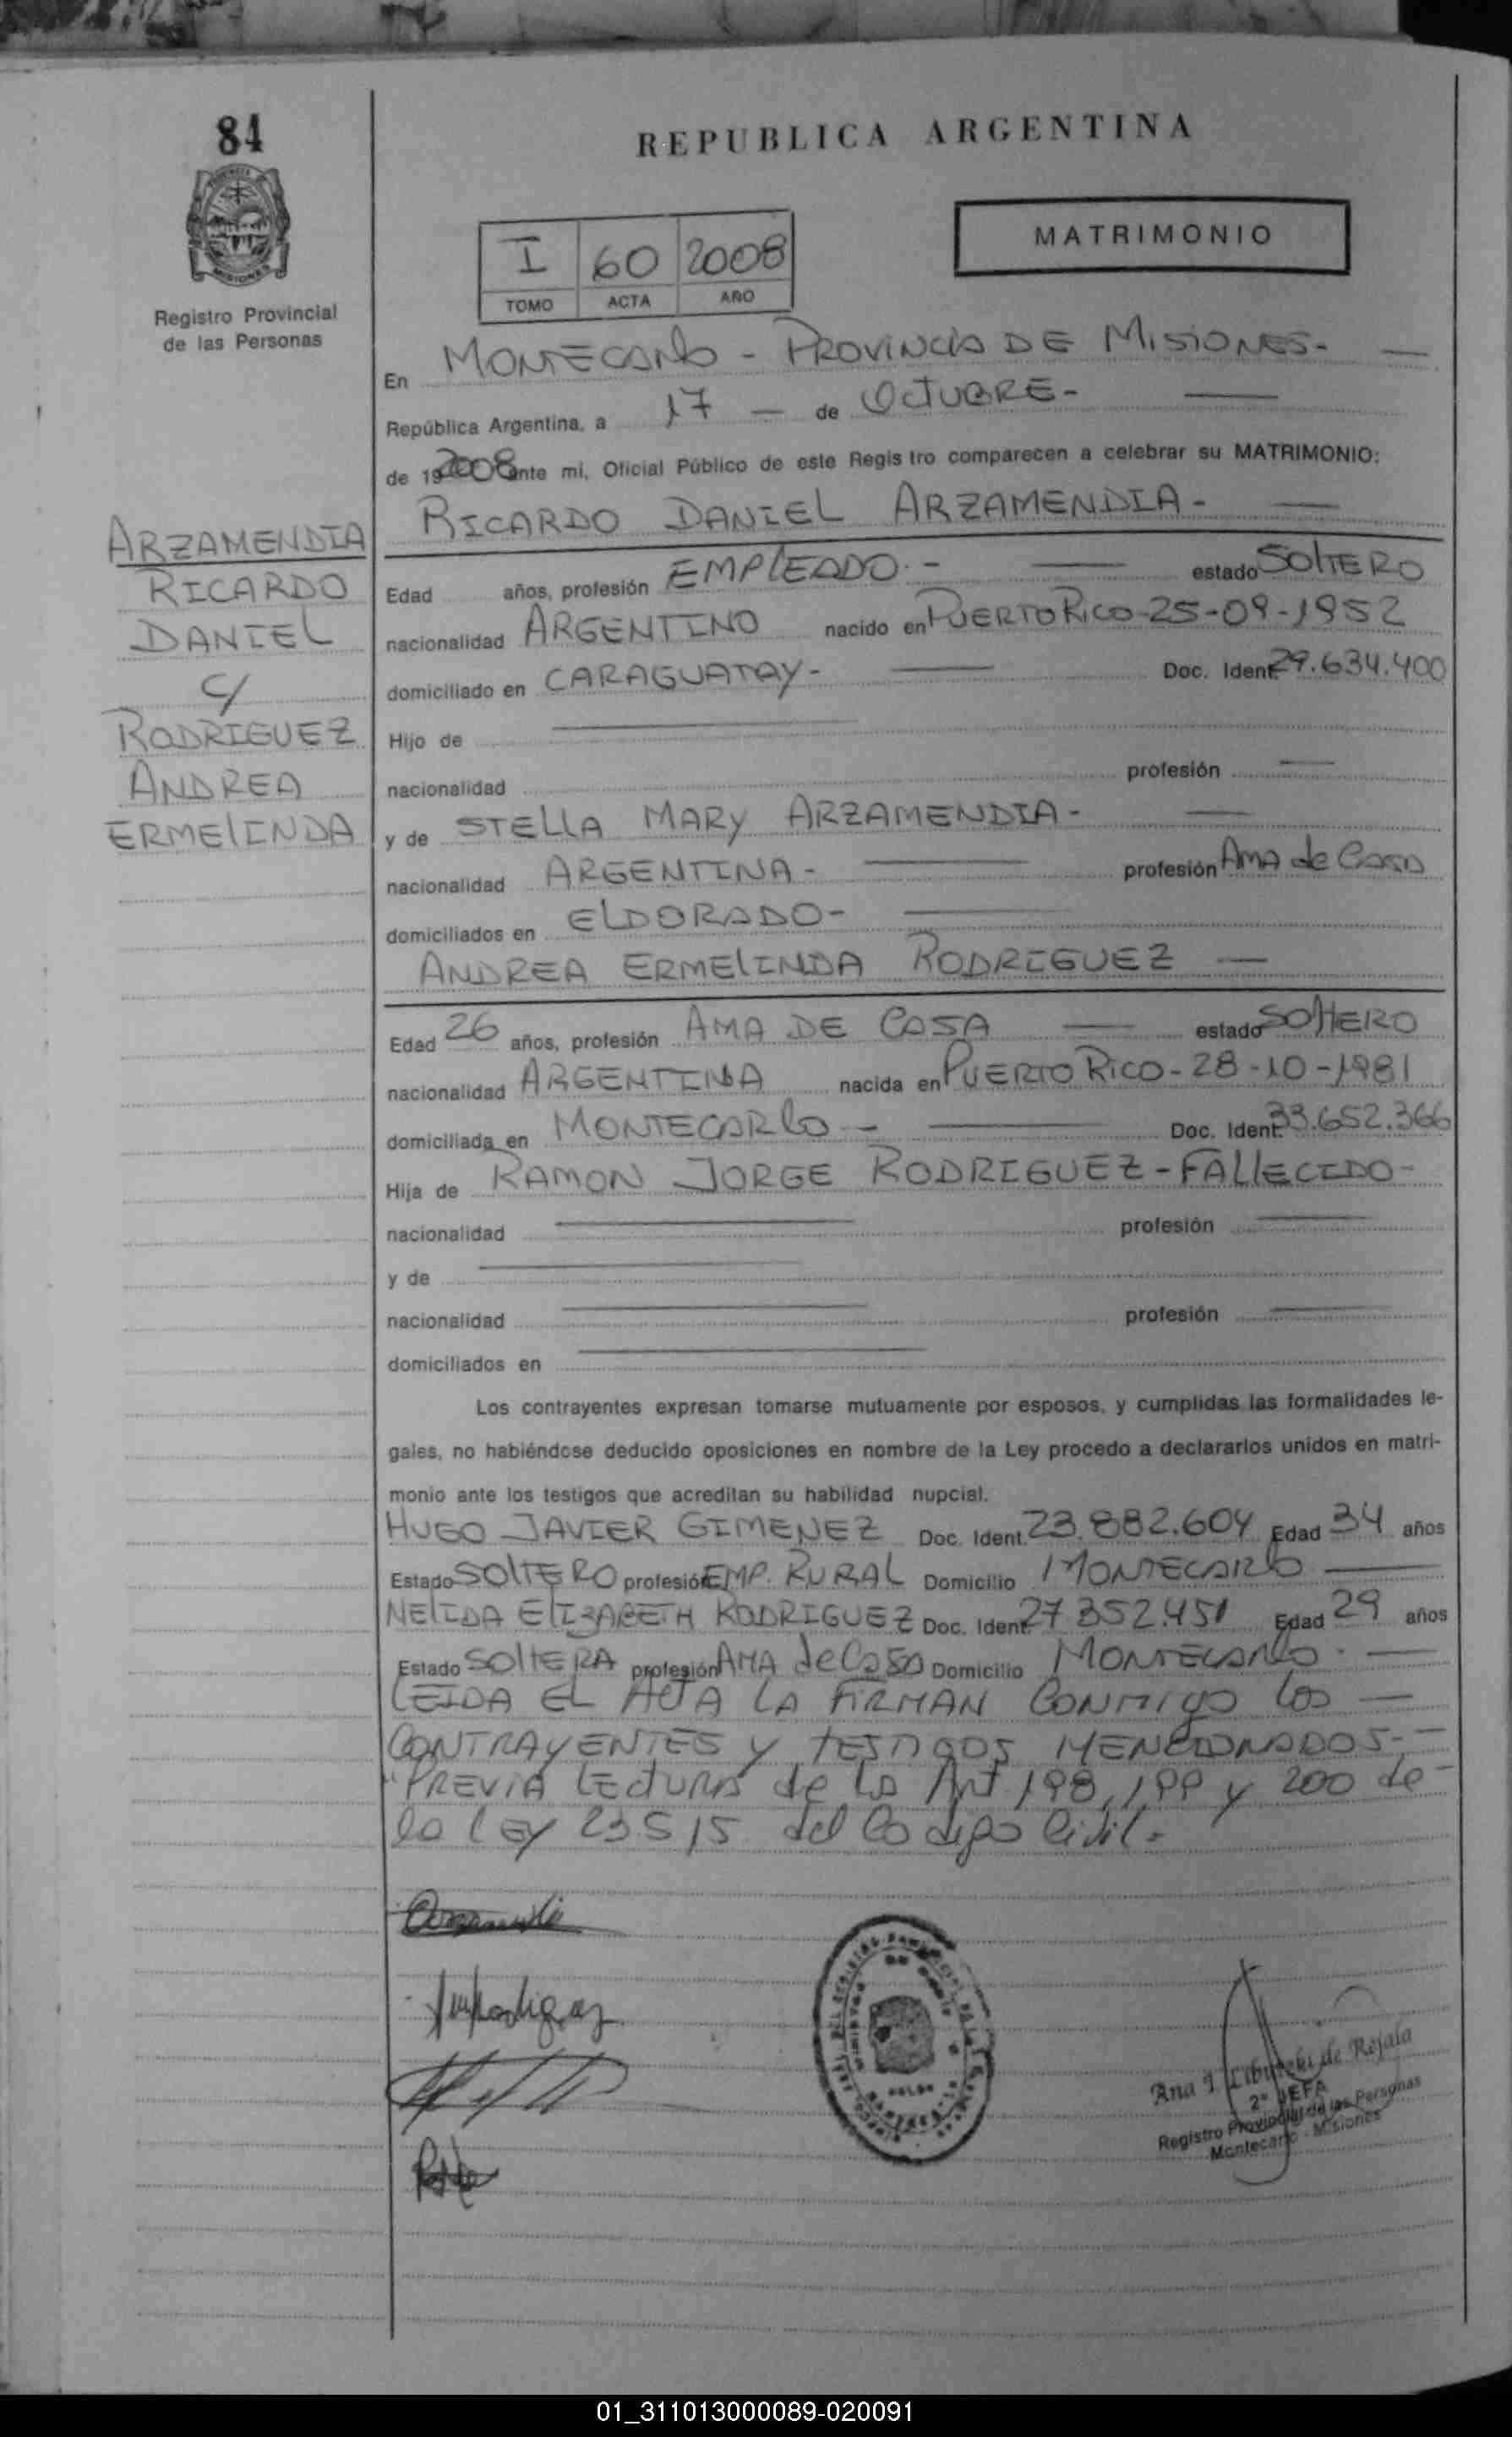 84
REPUBLICA ARGENTINA
MATRIMONIO
I 60 2008
TOMO ACTA AÑO
Registro Provincial
de las Personas
En MONTECARLO - PROVINCIA DE MISIONES-
República Argentina, a 17 — de OCTUBRE-
de 19 2008 ante mi, Oficial Público de este Registro comparecen a celebrar su MATRIMONIO:
RICARDO DANIEL ARZAMENDIA-
ARZAMENDIA
RICARDO
DANIEL
C/
RODRIGUEZ
ANDREA
ERMELINDA
Edad años, profesión EMPLEADO.- estado SOLTERO
nacionalidad ARGENTINO nacido en PUERTO RICO-25-09-1952
domiciliado en CARAGUATAY- Doc. Ident. 29.634.400
Hijo de
nacionalidad profesión
y de STELLA MARY ARZAMENDIA-
nacionalidad ARGENTINA- profesión AMA de CASA
domiciliados en ELDORADO-
ANDREA ERMELINDA RODRIGUEZ —
Edad 26 años, profesión AMA DE CASA estado SOLTERO
nacionalidad ARGENTINA nacida en PUERTO RICO-28-10-1981
domiciliada en MONTECARLO- Doc. Ident. 33.652.366
Hija de RAMON JORGE RODRIGUEZ-FALLECIDO-
nacionalidad profesión
y de
nacionalidad profesión
domiciliados en
Los contrayentes expresan tomarse mutuamente por esposos, y cumplidas las formalidades le-
gales, no habiéndose deducido oposiciones en nombre de la Ley procedo a declararlos unidos en matri-
monio ante los testigos que acreditan su habilidad nupcial.
HUGO JAVIER GIMENEZ Doc. Ident. 23.882.604 Edad 34 años
Estado SOLTERO profesión EMP. RURAL Domicilio MONTECARLO
NELIDA ELIZABETH RODRIGUEZ Doc. Ident. 27.352.451 Edad 29 años
Estado SOLTERA profesión AMA de CASA Domicilio MONTECARLO.
LEIDA EL ACTA LA FIRMAN CONMIGO LOS —
CONTRAYENTES Y TESTIGOS MENCIONADOS.-
"PREVIA LECTURA de la Art. 198, 199 y 200 de
la LEY 23.515 del Codigo Civil.-
Ana I. de Rejala
2ª JEFA
Registro Provincial de las Personas
Montecarlo - Misiones
01_311013000089-020091